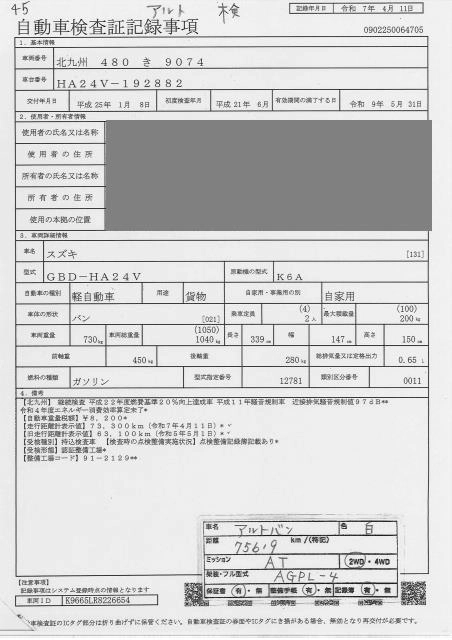 45 アルト 検
記録年月日 令和 7年 4月 11日
自動車検査証記録事項
0902250064705
1. 基本情報
車両番号 北九州 480 き 9074
車台番号 HA24V-192882
交付年月日 平成 25年 1月 8日 初度検査年月 平成 21年 6月 有効期間の満了する日 令和 9年 5月 31日
2. 使用者・所有者情報
使用者の氏名又は名称
使用者の住所
所有者の氏名又は名称
所有者の住所
使用の本拠の位置
3. 車両詳細情報
車名 スズキ [131]
型式 GBD-HA24V 原動機の型式 K6A
自動車の種別 軽自動車 用途 貨物 自家用・事業用の別 自家用
車体の形状 バン [021] 乗車定員 (4) 2人 最大積載量 (100) 200kg
車両重量 730kg 車両総重量 (1050) 1040kg 長さ 339cm 幅 147cm 高さ 150cm
前軸重 450kg 後軸重 280kg 総排気量又は定格出力 0.65L
燃料の種類 ガソリン 型式指定番号 12781 類別区分番号 0011
4. 備考
【北九州】 継続検査 平成22年度燃費基準20%向上達成車 平成11年騒音規制車 近接排気騒音規制値97dB**
令和4年度エネルギー消費効率算定未了*
【自動車重量税額】¥8,200*
【走行距離計表示値】73,300km(令和7年4月11日)*
【旧走行距離計表示値】63,100km(令和5年5月1日)*
【受検種別】持込検査車 【検査時の点検整備実施状況】点検整備記録簿記載あり*
【受検形態】認証整備工場*
【整備工場コード】91-2129**
車名 アルトバン 色 白
距離 75619 km/(特記)
ミッション AT 2WD・4WD
架装・フル型式 AGPL-4
保証書 有・無 整備手帳 有・無 記録簿 有・無
【注意事項】
記録事項はシステム登録時点の情報となります
車両ID K9665LR8226654
車検査証のICタグ部分は折り曲げずに保管ください。自動車検査証の券面やICタグに き損がある場合、無効となり再交付が必要です。